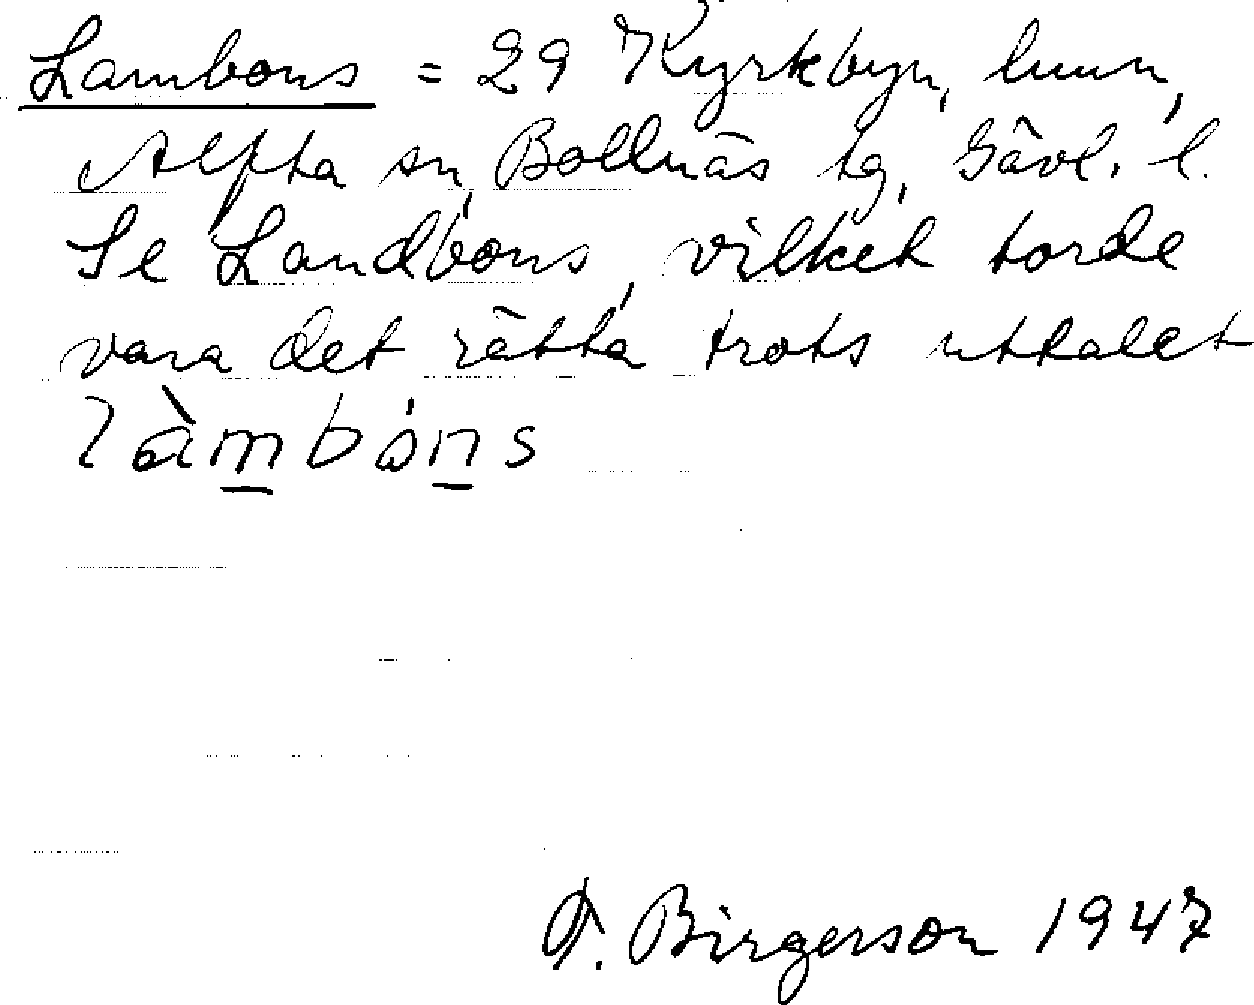 Lambons = 29 Kyrkbyn, hmn,
Alfta sn, Bollnäs tg, Gävl. l.
Se Landbons, vilket torde
vara det rätta trots uttalet
làmbóns
T. Birgerson 1947